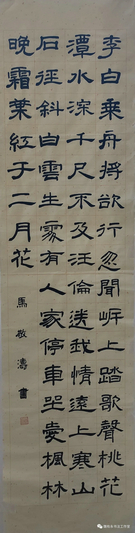 李白乘舟將欲行忽聞岸上踏歌聲桃花
潭水深千尺不及汪倫送我情遠上寒山
石徑斜白雲生處有人家停車坐愛楓林
晚霜葉紅于二月花
馬敬濤書